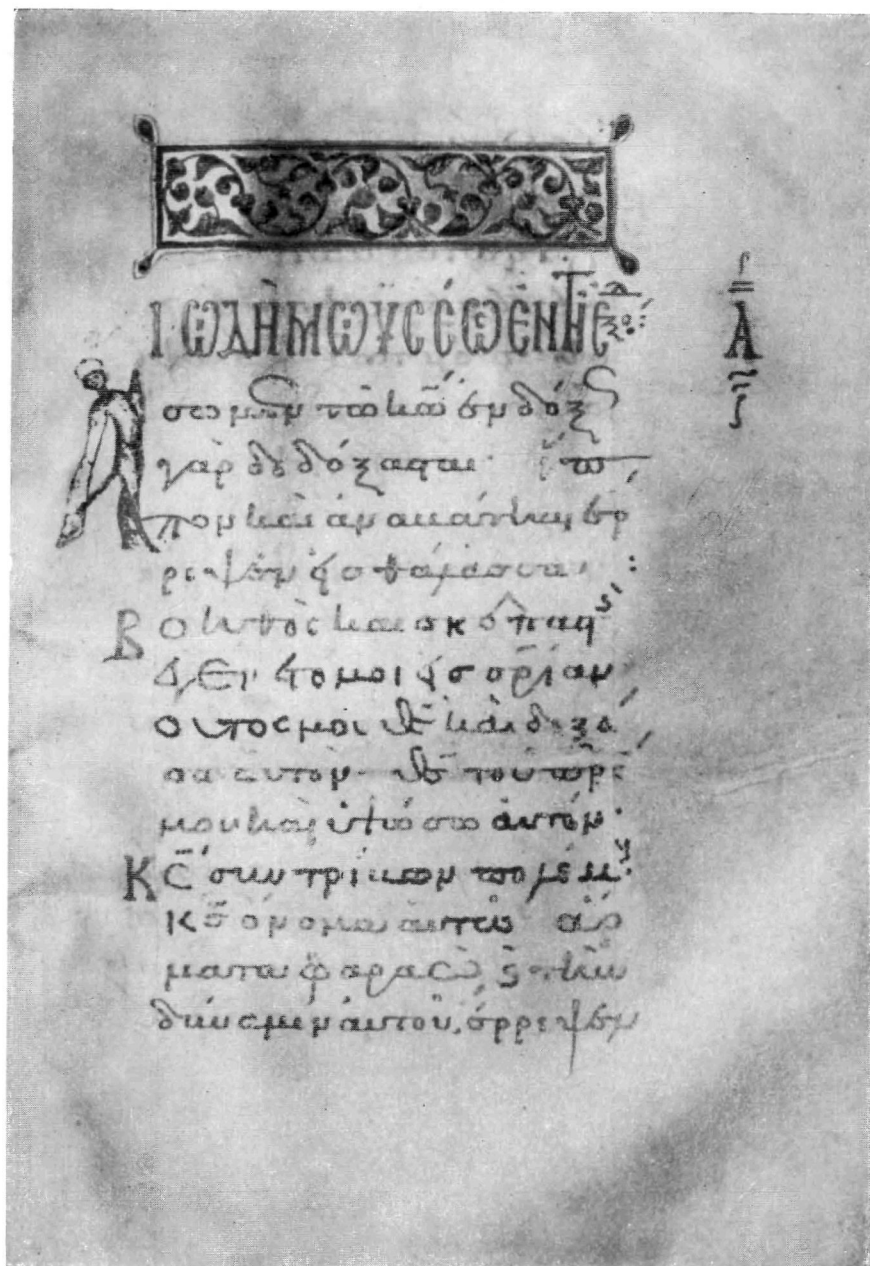 ὨΔῊ ΜΩΫΣΈΩ ἘΝ ΤῊ Ἐξοδ
Α
σωμεν τῶ κῶ ἐνδόξ
γὰρ δεδόξασται· ἵπ
πον καὶ ἀναβάτην ἔρ
ριψεν εἰς θάλασσαν:
Βοηθὸς καὶ σκεπασ
ἐγένετό μοι εἰς σρίαν
οὗτος μου θς καὶ δοξά
σω αὐτόν· θς τοῦ πρς
μου καὶ ὑψώσω αὐτόν·
Κς συντρίβων πολέμους
κς ὄνομα αὐτῶ ἅρ
ματα φαραὼ καὶ τὴν
δύναμιν αὐτοῦ, ἔρριψεν